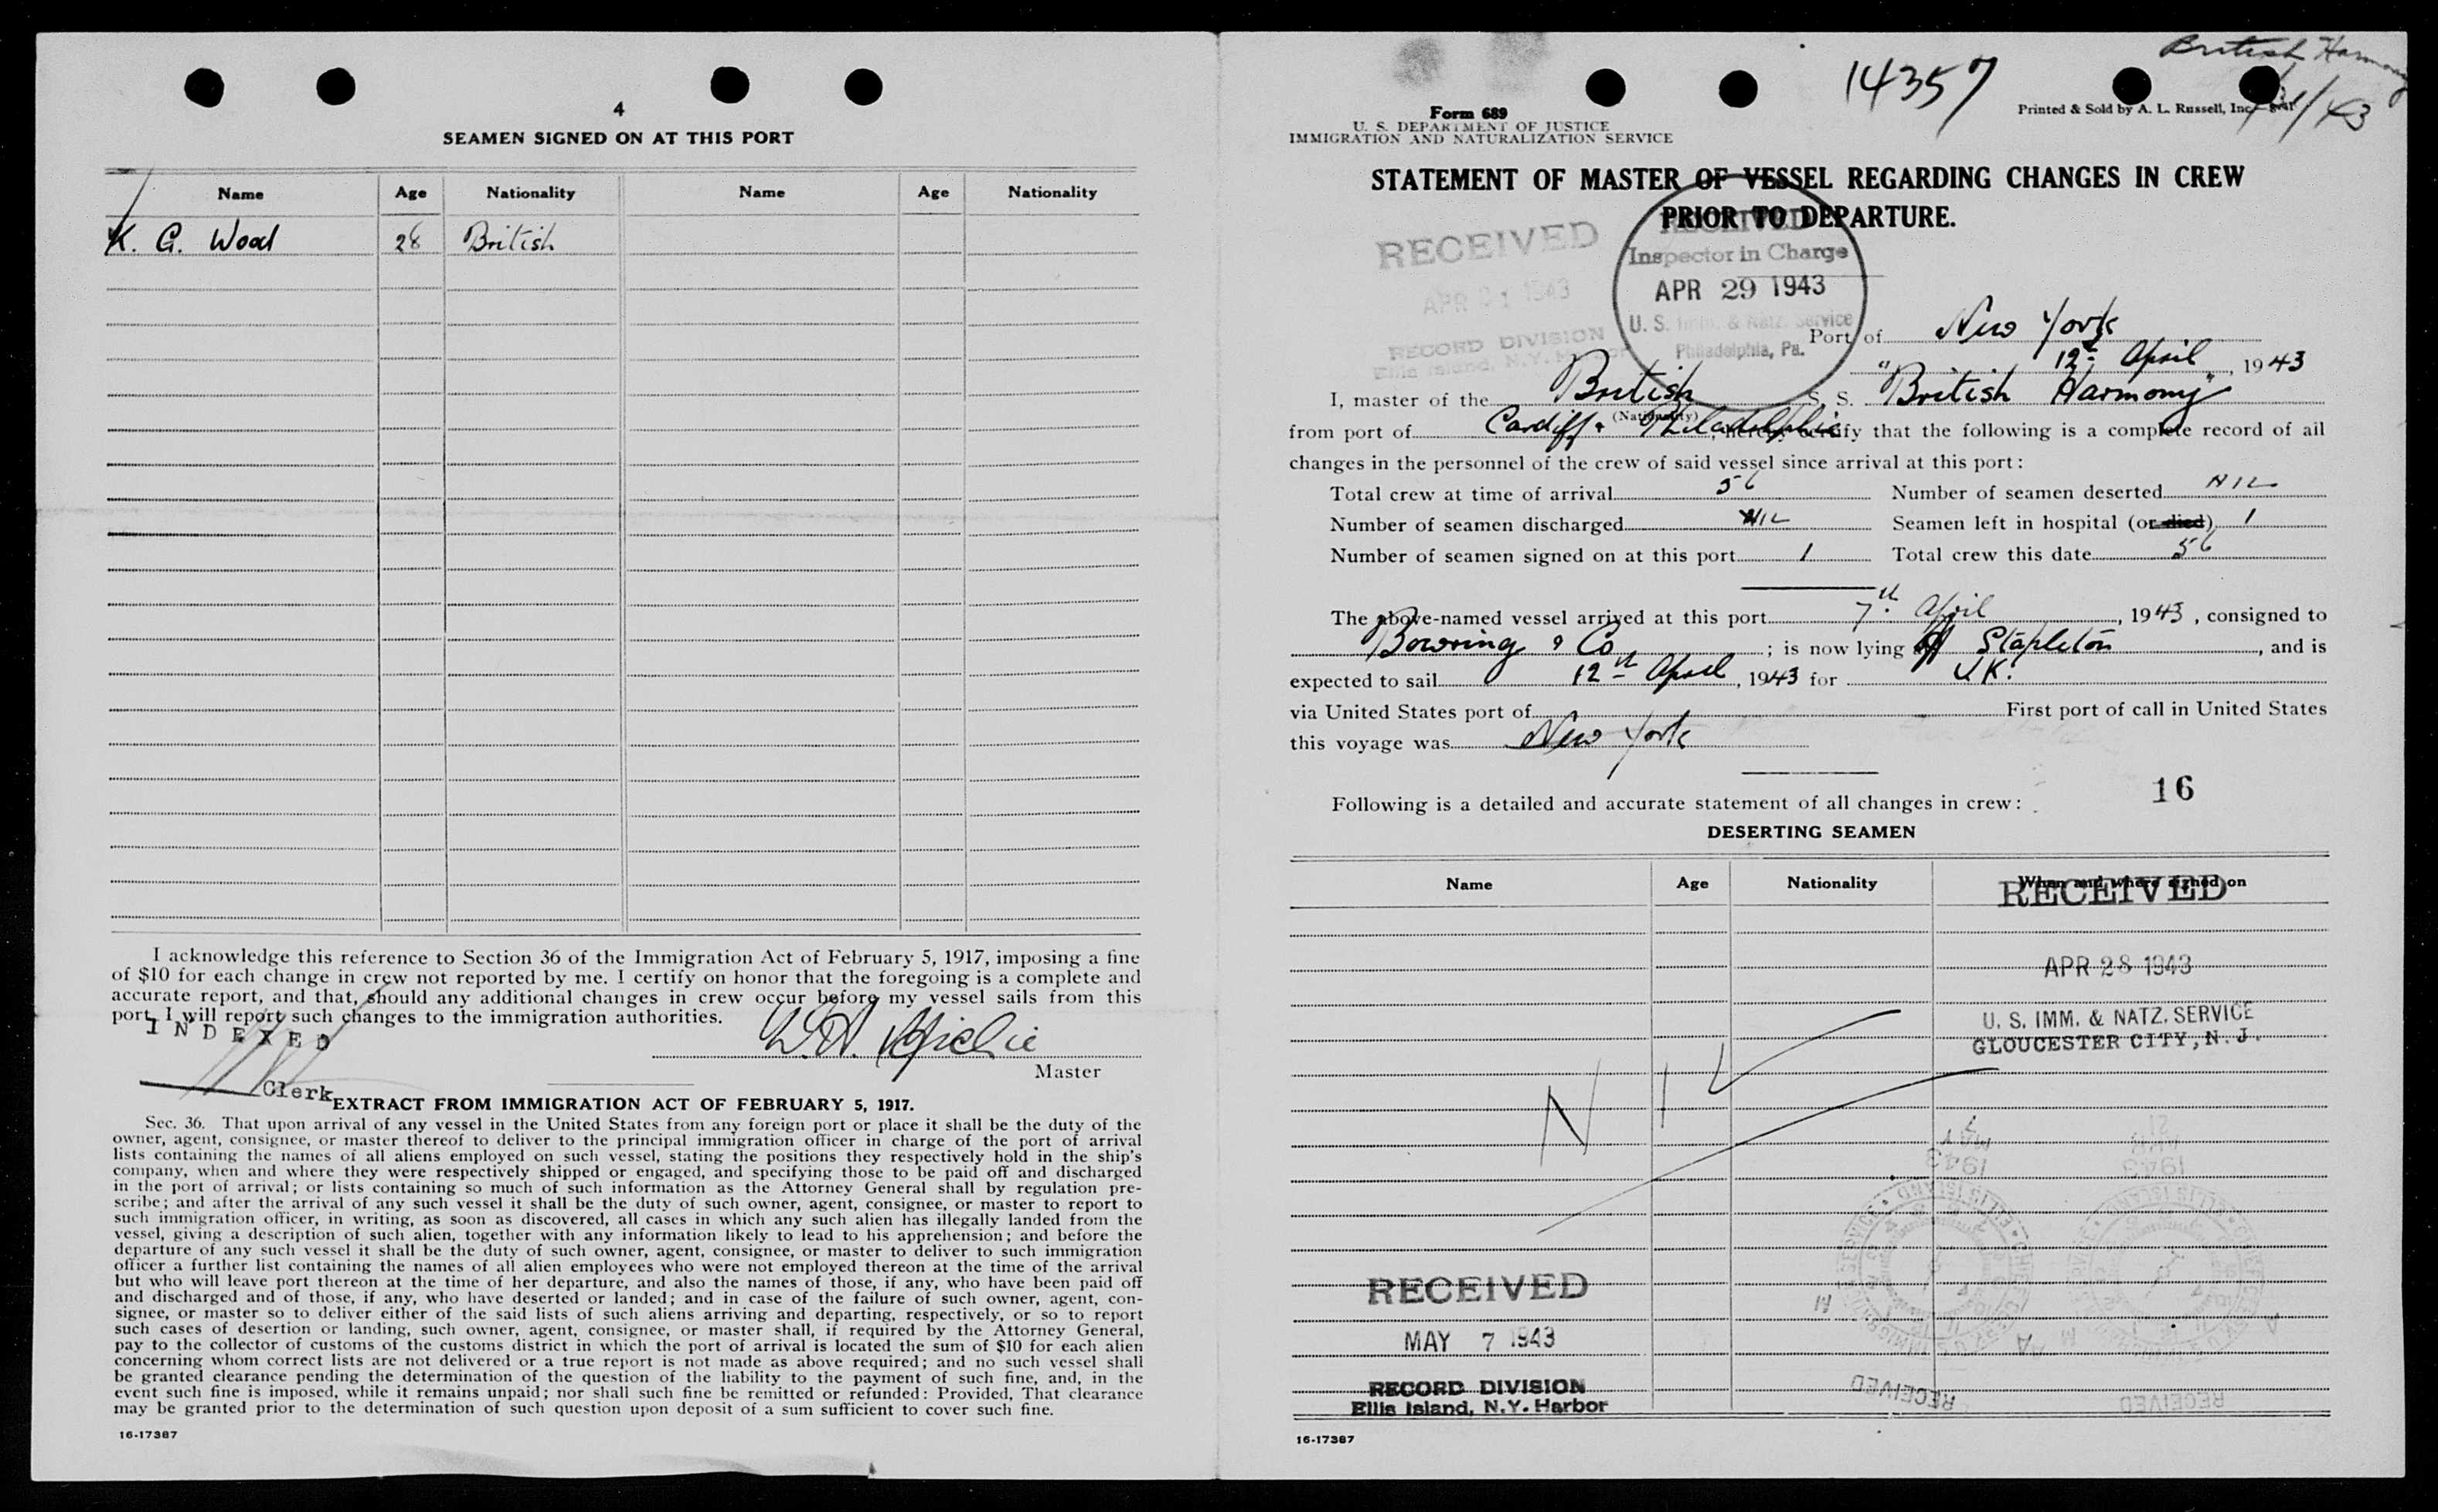 4
SEAMEN SIGNED ON AT THIS PORT
Name Age Nationality Name Age Nationality
K. G. Wood 28 British
I acknowledge this reference to Section 36 of the Immigration Act of February 5, 1917, imposing a fine
of $10 for each change in crew not reported by me. I certify on honor that the foregoing is a complete and
accurate report, and that, should any additional changes in crew occur before my vessel sails from this
port, I will report such changes to the immigration authorities.
INDEXED
Master
Clerk
EXTRACT FROM IMMIGRATION ACT OF FEBRUARY 5, 1917.
Sec. 36. That upon arrival of any vessel in the United States from any foreign port or place it shall be the duty of the
owner, agent, consignee, or master thereof to deliver to the principal immigration officer in charge of the port of arrival
lists containing the names of all aliens employed on such vessel, stating the positions they respectively hold in the ship's
company, when and where they were respectively shipped or engaged, and specifying those to be paid off and discharged
in the port of arrival; or lists containing so much of such information as the Attorney General shall by regulation pre-
scribe; and after the arrival of any such vessel it shall be the duty of such owner, agent, consignee, or master to report to
such immigration officer, in writing, as soon as discovered, all cases in which any such alien has illegally landed from the
vessel, giving a description of such alien, together with any information likely to lead to his apprehension; and before the
departure of any such vessel it shall be the duty of such owner, agent, consignee, or master to deliver to such immigration
officer a further list containing the names of all alien employees who were not employed thereon at the time of the arrival
but who will leave port thereon at the time of her departure, and also the names of those, if any, who have been paid off
and discharged and of those, if any, who have deserted or landed; and in case of the failure of such owner, agent, con-
signee, or master so to deliver either of the said lists of such aliens arriving and departing, respectively, or so to report
such cases of desertion or landing, such owner, agent, consignee, or master shall, if required by the Attorney General,
pay to the collector of customs of the customs district in which the port of arrival is located the sum of $10 for each alien
concerning whom correct lists are not delivered or a true report is not made as above required; and no such vessel shall
be granted clearance pending the determination of the question of the liability to the payment of such fine, and, in the
event such fine is imposed, while it remains unpaid; nor shall such fine be remitted or refunded: Provided, That clearance
may be granted prior to the determination of such question upon deposit of a sum sufficient to cover such fine.
16-17387
British Harmony
14357
Form 689
U. S. DEPARTMENT OF JUSTICE
IMMIGRATION AND NATURALIZATION SERVICE
Printed & Sold by A. L. Russell, Inc.
STATEMENT OF MASTER OF VESSEL REGARDING CHANGES IN CREW
PRIOR TO DEPARTURE.
RECEIVED
RECORD DIVISION
Ellis Island, N.Y. Harbor
RECEIVED
Inspector in Charge
APR 29 1943
U. S. Imm. & Natz. Service
Philadelphia, Pa.
Port of New York
12th April, 1943
I, master of the British S. S. "British Harmony"
(Nationality)
from port of Cardiff & Philadelphia, hereby certify that the following is a complete record of all
changes in the personnel of the crew of said vessel since arrival at this port:
Total crew at time of arrival 56 Number of seamen deserted NIL
Number of seamen discharged NIL Seamen left in hospital (or died) 1
Number of seamen signed on at this port 1 Total crew this date 56
The above-named vessel arrived at this port 7th April, 1943, consigned to
Bowring & Co; is now lying at Stapleton, and is
expected to sail 12th April, 1943 for U.K.
via United States port of First port of call in United States
this voyage was New York
16
Following is a detailed and accurate statement of all changes in crew:
DESERTING SEAMEN
Name Age Nationality When and where signed on
RECEIVED
APR 28 1943
U. S. IMM. & NATZ. SERVICE
GLOUCESTER CITY, N. J.
NIL
RECEIVED
MAY 7 1943
RECORD DIVISION
Ellis Island, N.Y. Harbor
RECEIVED
RECEIVED
16-17387